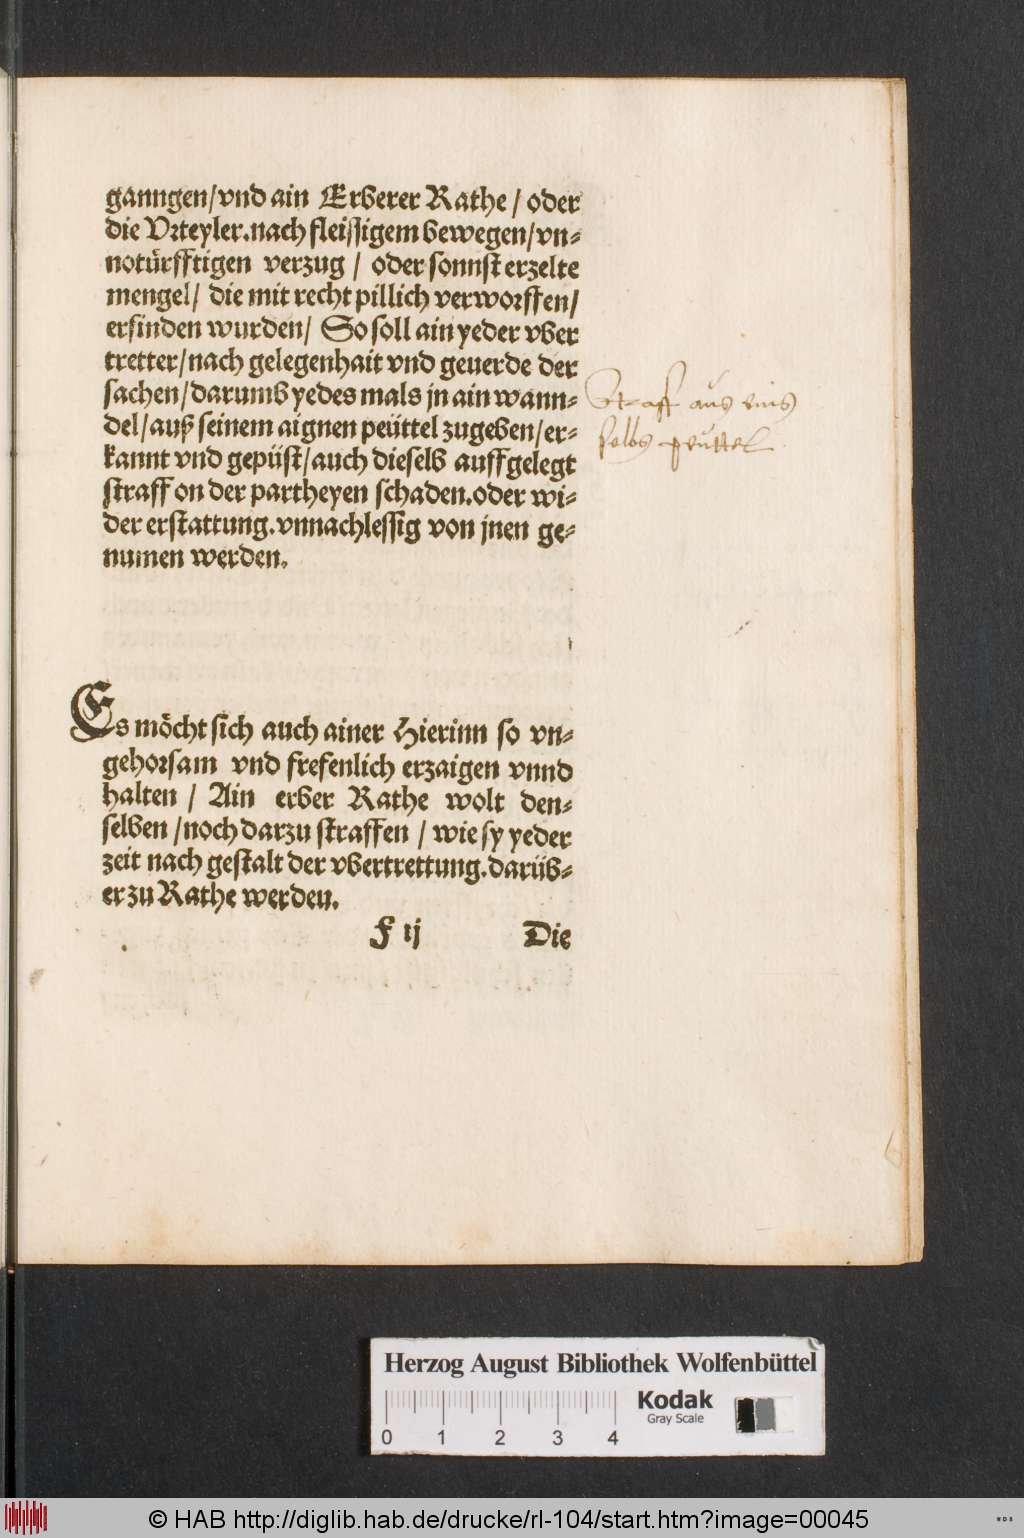 ganngen/vnd ain Erberer Rathe/oder
die Vrteyler.nach fleissigem bewegen/vn-
notürfftigen verzug / oder sonnst erzelte
mengel/ die mit recht pillich verworffen/
erfinden wurden/ So soll ain yeder vber
tretter/nach gelegenhait vnd geuerde der
sachen/darumb yedes mals jn ain wann-
del/auß seinem aignen peüttel zugeben/er-
kannt vnd gepüst/auch dieselb auffgelegt
straff on der partheyen schaden.oder wi-
der erstattung.vnnachlessig von jnen ge-
numen werden.
Straff aus eins
selbs peüttel
Es möcht sich auch ainer Hierinn so vn-
gehorsam vnd frefenlich erzaigen vnnd
halten / Ain erber Rathe wolt den-
selben /noch darzu straffen / wie sy yeder
zeit nach gestalt der vbertrettung.darüb-
er zu Rathe werden.
F ij Die
Herzog August Bibliothek Wolfenbüttel
Kodak
Gray Scale
0 1 2 3 4
© HAB http://diglib.hab.de/drucke/rl-104/start.htm?image=00045